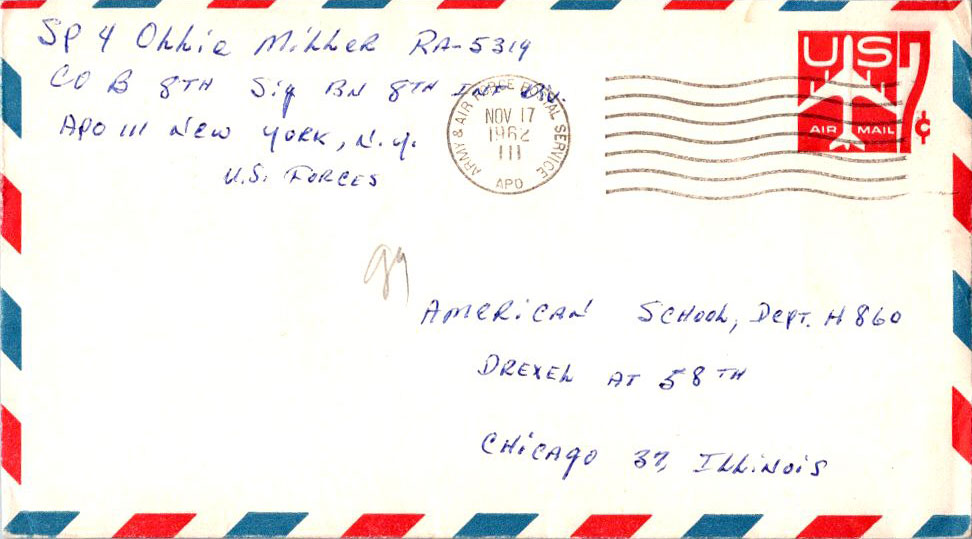 SP 4 Ollie Miller RA-5314
CO B 8TH Sig BN 8TH INF DIV.
APO 111 NEW YORK, N.Y.
U.S. FORCES
ARMY & AIR FORCE POSTAL SERVICE
NOV 17
1962
111
APO
US 7¢
AIR MAIL
AMERICAN SCHOOL, DEPT. H 860
DREXEL AT 58TH
CHICAGO 37, ILLINOIS